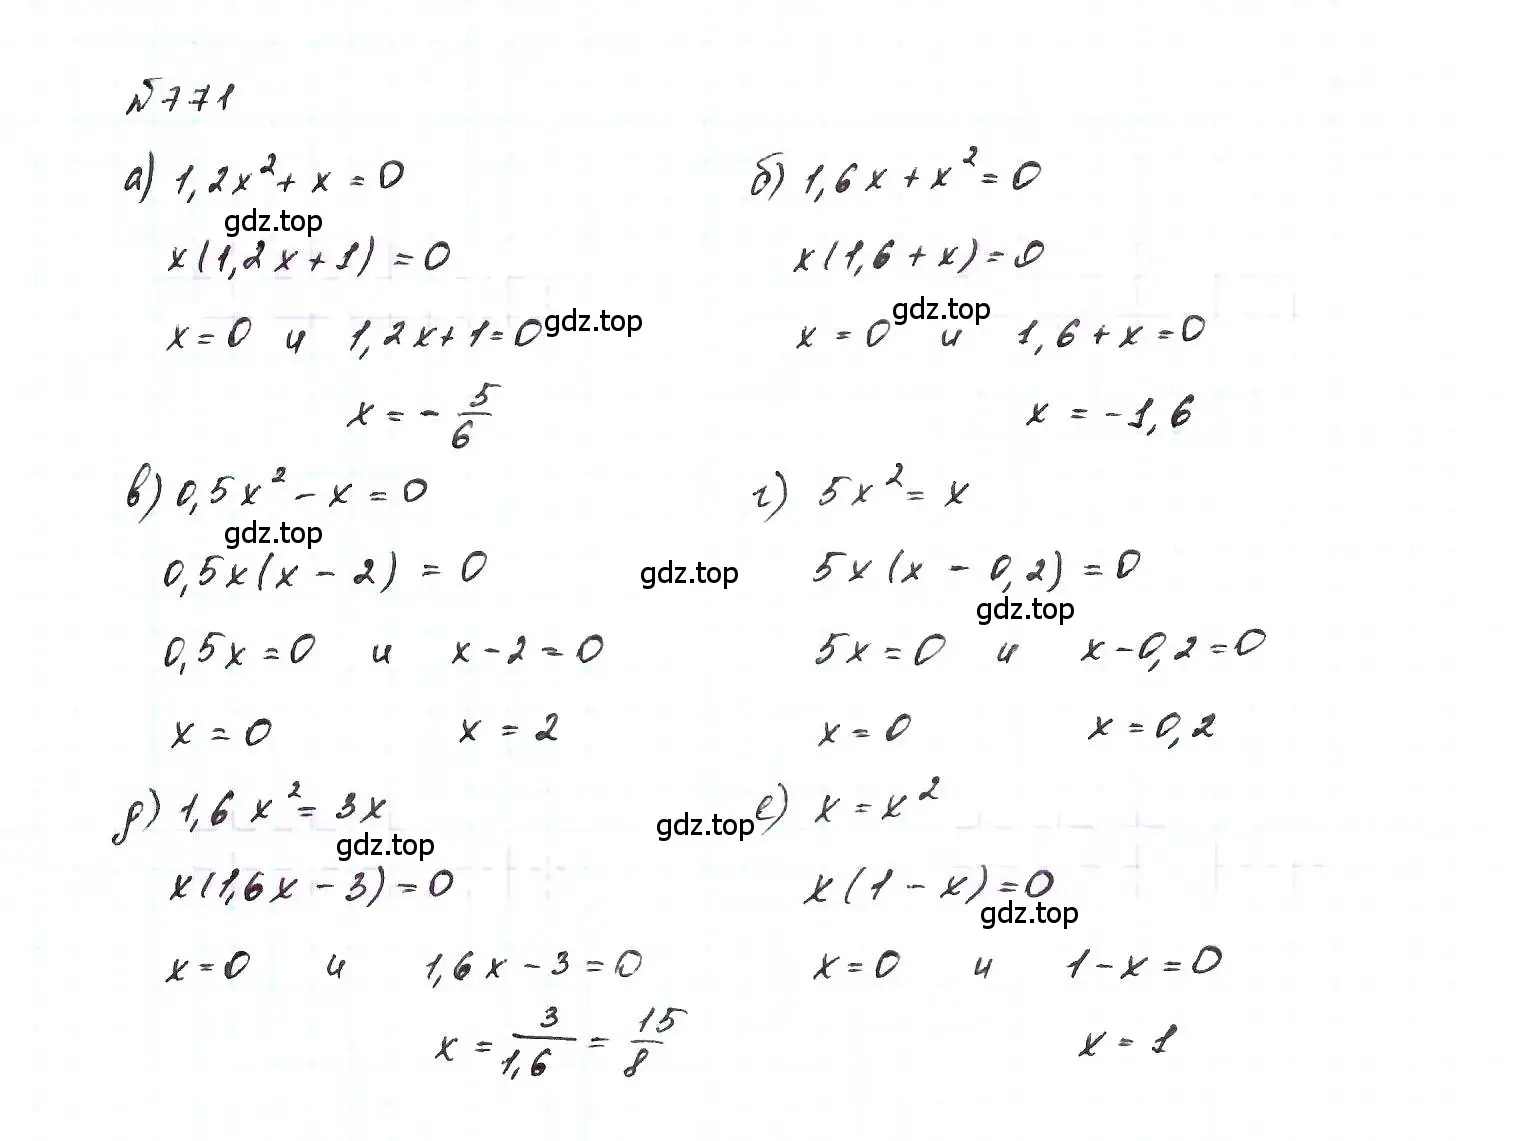 №771
а) 1,2x² + x = 0
gdz.top
x(1,2x + 1) = 0
x = 0 и 1,2x + 1 = 0
gdz.top
x = - 5/6
б) 1,6x + x² = 0
x(1,6 + x) = 0
gdz.top
x = 0 и 1,6 + x = 0
x = -1,6
в) 0,5x² - x = 0
gdz.top
0,5x(x - 2) = 0
gdz.top
0,5x = 0 и x - 2 = 0
x = 0 x = 2
г) 5x² = x
5x(x - 0,2) = 0
gdz.top
5x = 0 и x - 0,2 = 0
x = 0 x = 0,2
д) 1,6x² = 3x
gdz.top
gdz.top
x(1,6x - 3) = 0
x = 0 и 1,6x - 3 = 0
x = 3/1,6 = 15/8
е) x = x²
x(1 - x) = 0
gdz.top
x = 0 и 1 - x = 0
x = 1